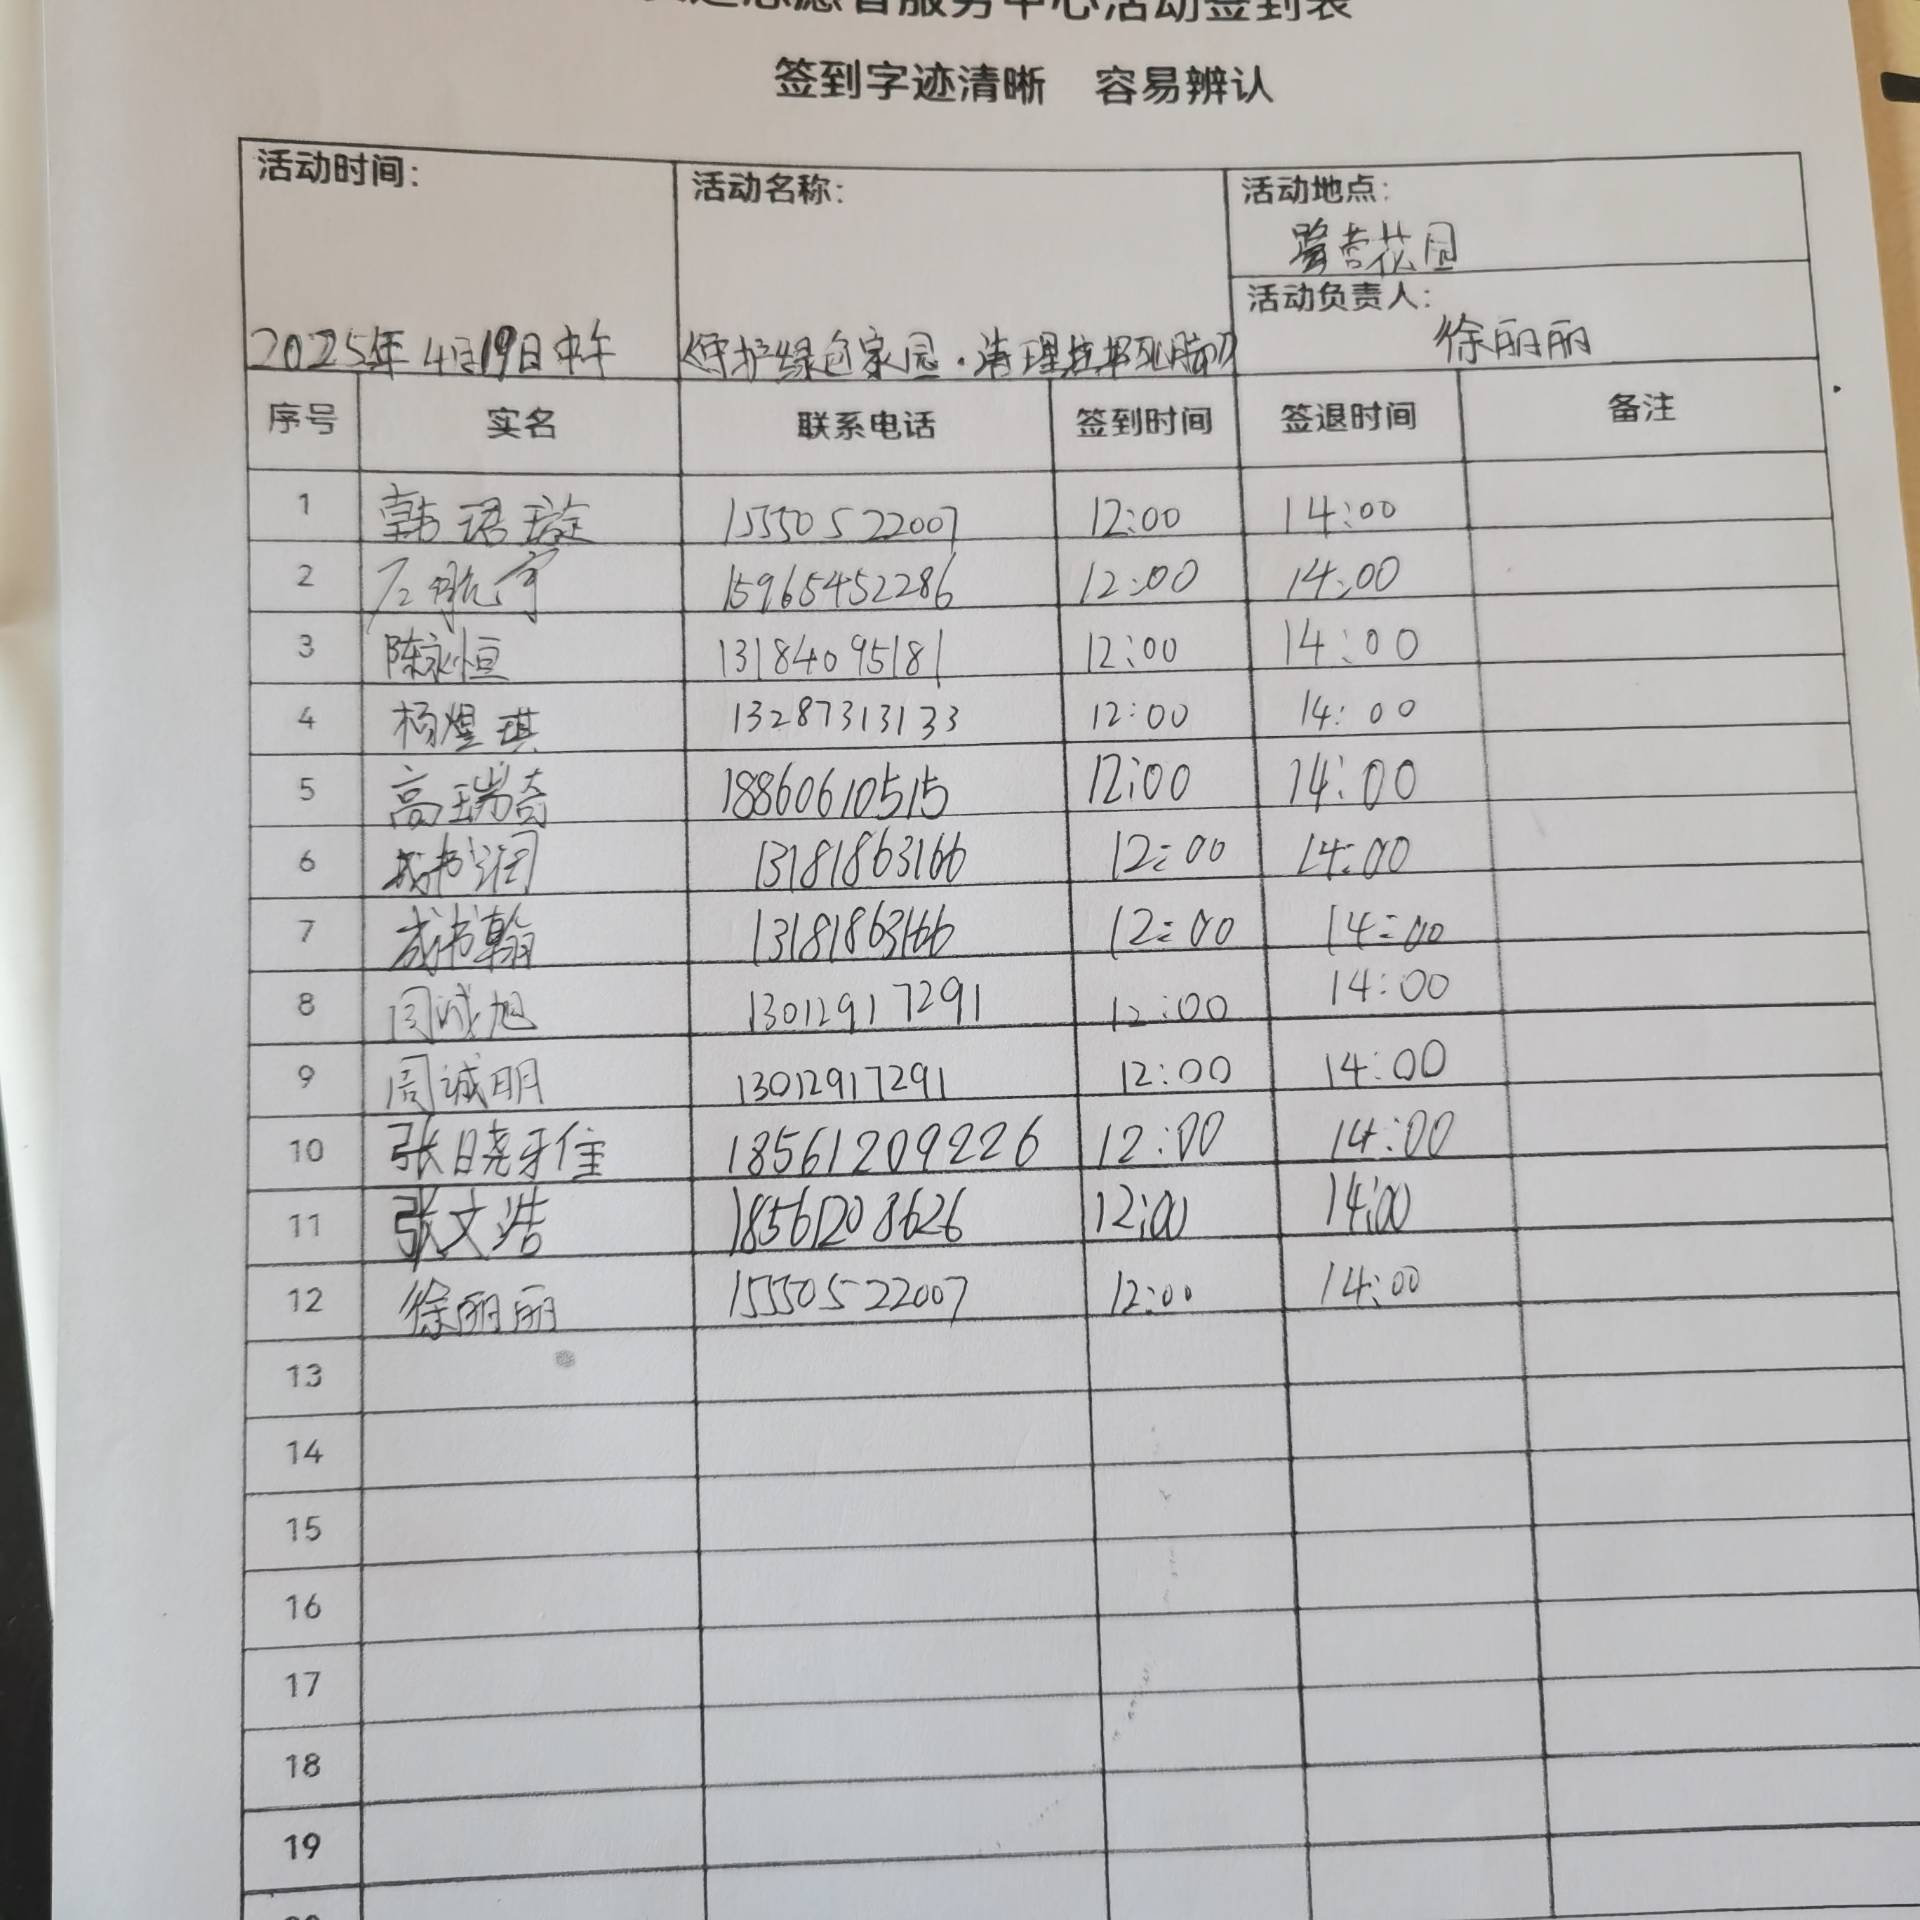 志愿者服务中心活动签到表
签到字迹清晰 容易辨认
活动时间: 活动名称: 活动地点:
花园
活动负责人:
2025年4月19日中午 《守护绿色家园·清理垃圾死角》 徐丽丽
序号 实名 联系电话 签到时间 签退时间 备注
1 韩珺璇 15550522007 12:00 14:00
2 航宇 15965452286 12:00 14:00
3 陈永恒 13184095181 12:00 14:00
4 杨煜琪 13287313133 12:00 14:00
5 高瑞奇 18860610515 12:00 14:00
6 成书润 13181863166 12:00 14:00
7 成书翰 13181863166 12:00 14:00
8 周诚旭 13012917291 12:00 14:00
9 周诚明 13012917291 12:00 14:00
10 张晓 18561209226 12:00 14:00
11 张文浩 18561208626 12:00 14:00
12 徐丽丽 15550522007 12:00 14:00
13
14
15
16
17
18
19